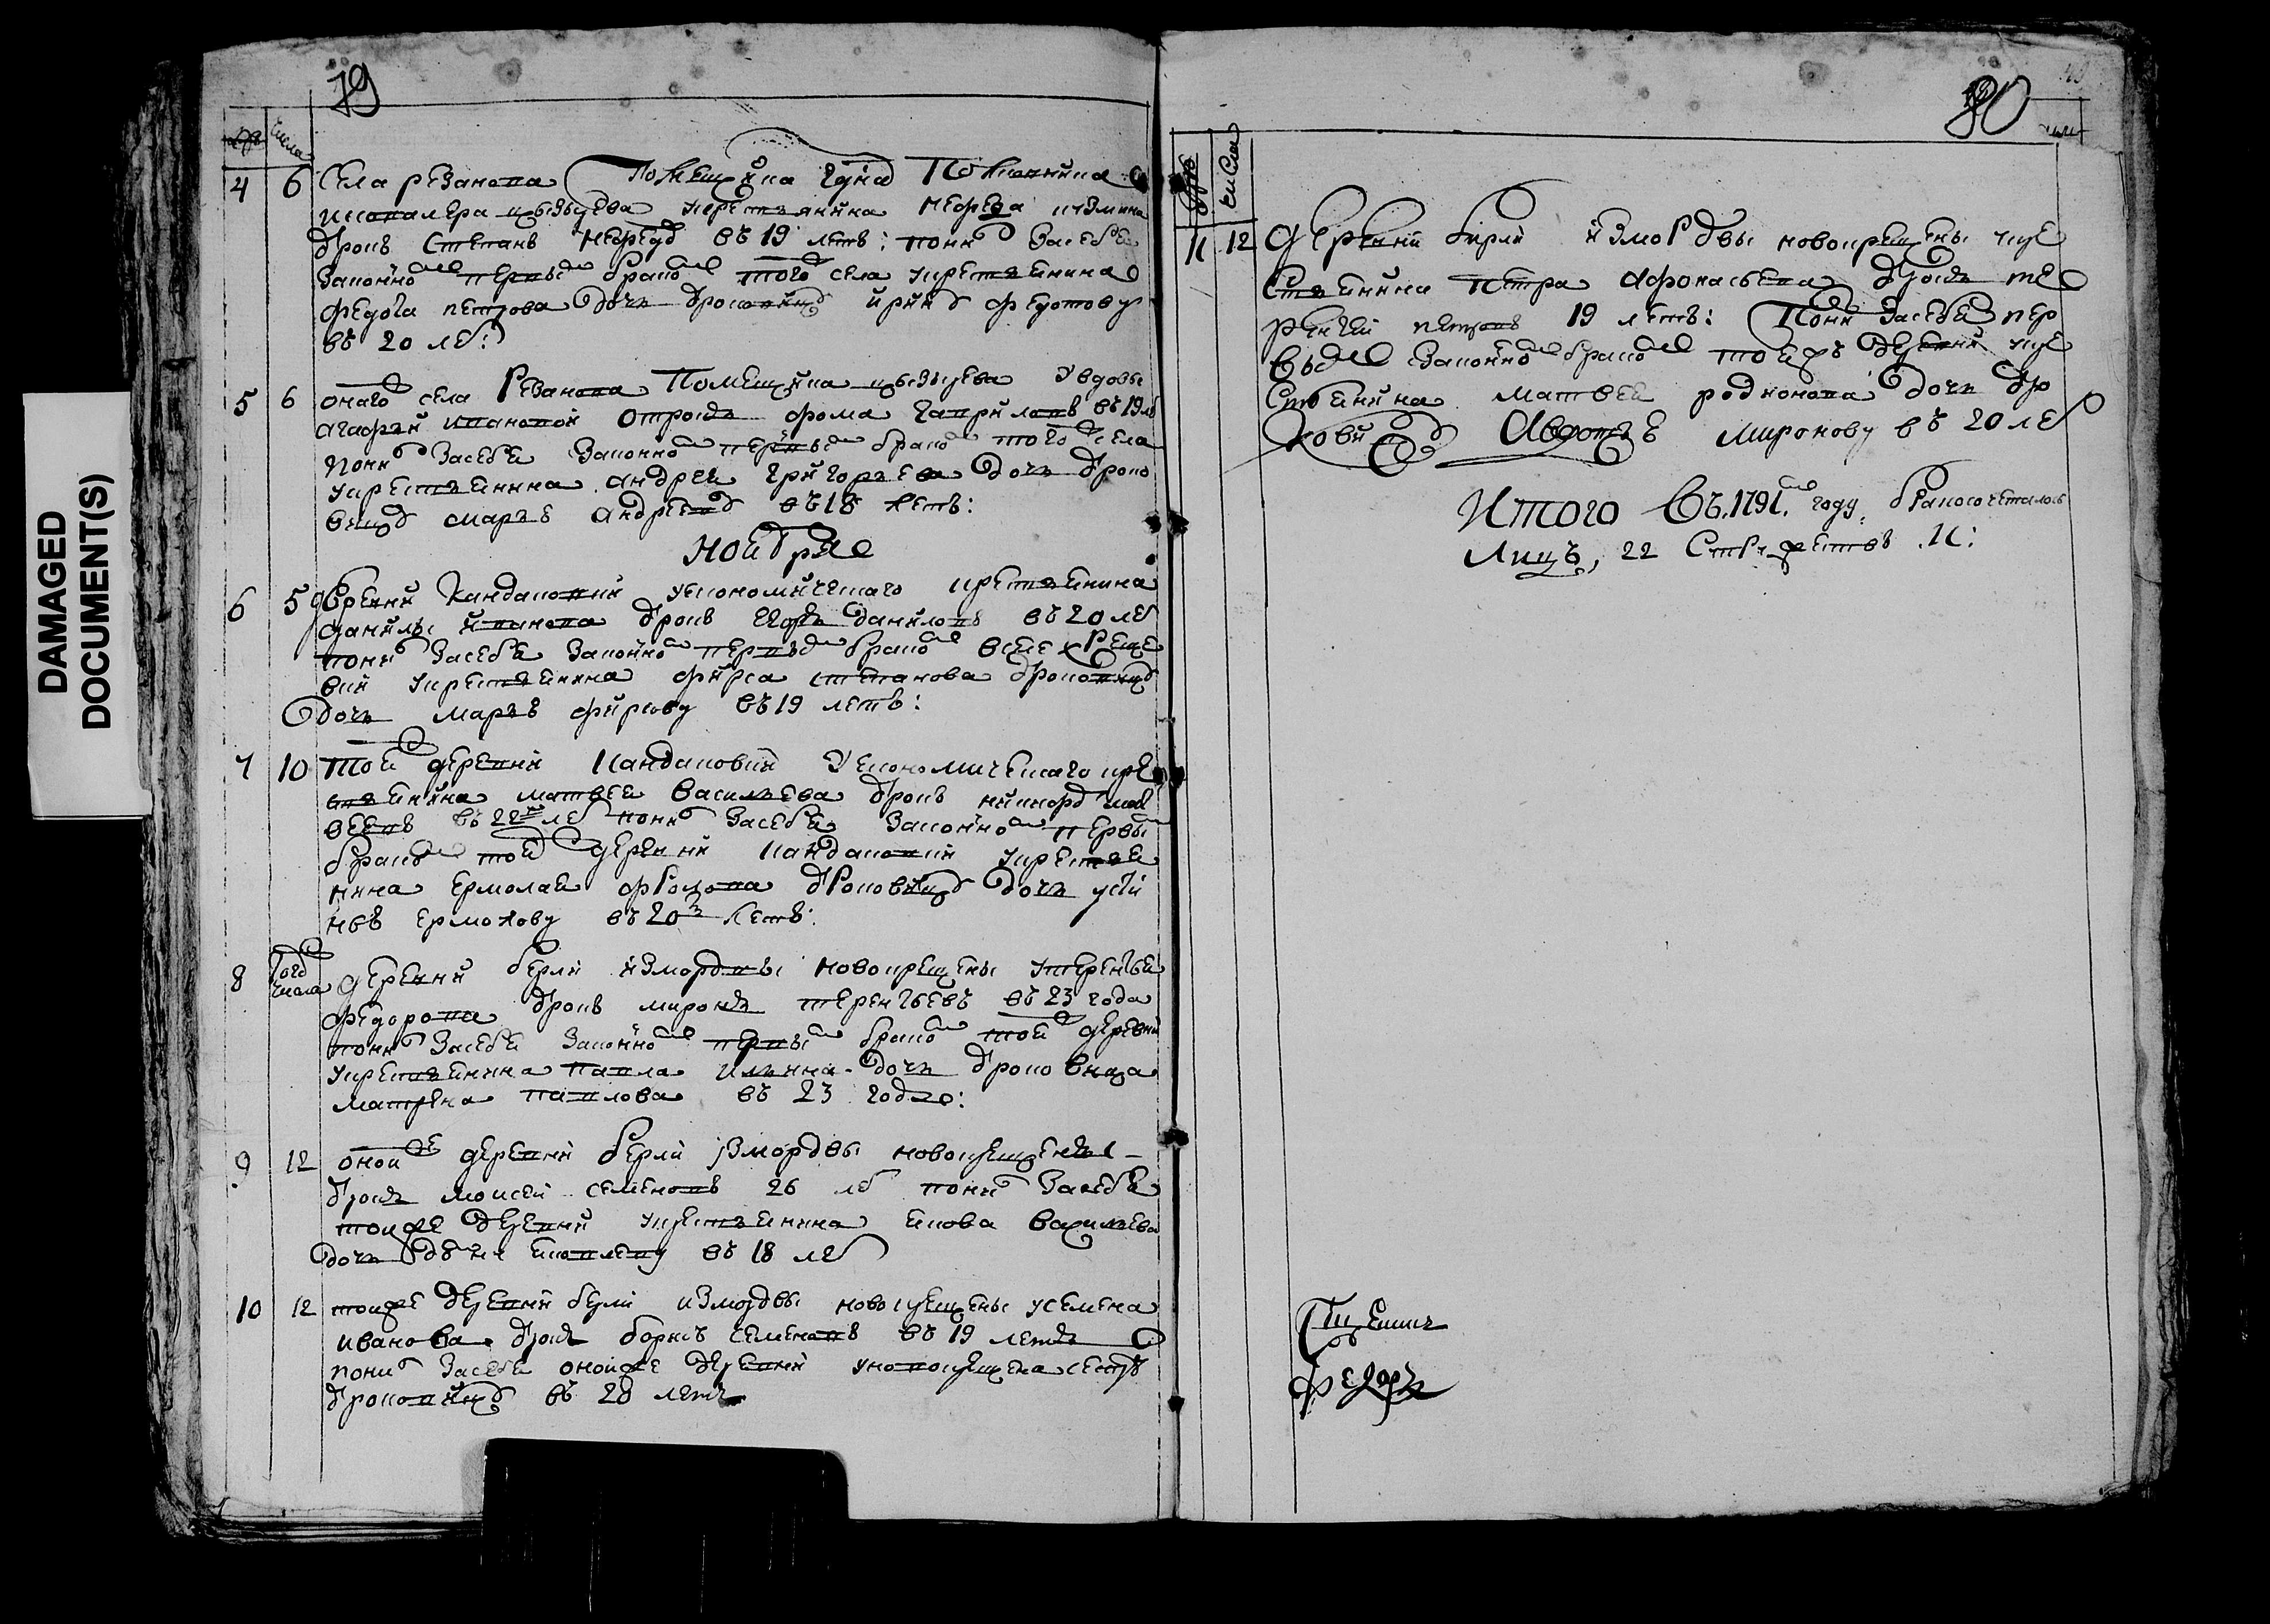 DAMAGED
DOCUMENT(S)
79
числа
4 6 Села резанова Помещика гдна Полковника
и кавалера крестьянина нефеда кузмина
Отрокъ Степанъ нефедо въ 19 летъ: понялъ засебя
законно первы бракο того села укрестьянина
федота петрова дочь отроковицу ирину федотову
въ 20 ле:
5 6 оного села Резанова Помещика увдовы
агафьи ивановой отрокъ фома гавриловъ въ 19 ле
понялъ засебя законно первы брако того села
укрестьянина андрея григорьева дочь отроко
вицу марью андрееву въ 18 летъ:
ноября
6 5 деревни Кандаковки укономического крестьянина
данилы иванова отрокъ егоръ даниловъ въ 20 ле
понялъ засебя законно первы брако
укрестьянина фирса степанова отроковицу
дочь марью фирсову въ 19 летъ:
7 10 той деревни Кандаковки Укономического кре
стьянина матвея васильева отрокъ никифоръ мат
веевъ въ 22 ле понялъ засебя законно первы
брако той деревни кандаковки укрестья
нина ермолая фролова отроковицу дочь усти
нью ермолову въ 20 летъ:
8 того числа деревни берли измордвы новокрещены утерентья
федорова отрокъ миронъ терентьевъ въ 23 года
понялъ засебя законно первы брако той деревни
укрестьянина павла ильина дочь отроковица
матрена павлова въ 23 года:
9 12 оной деревни берли измордвы новокрещены
отрокъ моисей семеновъ 26 ле понялъ засебя
тоиже деревни укрестьянина якова васильева
дочь яковлеву въ 18 ле
10 12 тоиже деревни берли измордвы новокрещены усемена
иванова отрокъ борисъ семеновъ въ 19 летъ
понялъ засебя оноиже деревни уновокрещена сестру
отроковицу въ 28 летъ
80
числа
11 12 деревни берли измордвы новокрещены укре
стьянина петра афонасьева отрокъ те
рентей петровъ 19 летъ: Понялъ засебя пер
вы законно брако тоижъ деревни укре
стьянина матвея родионова дочь отро
ковицу Авдотью миронову въ 20 ле
Итого въ 1791 году бракосочеталось
Лицъ, 22 Стр
Федоръ